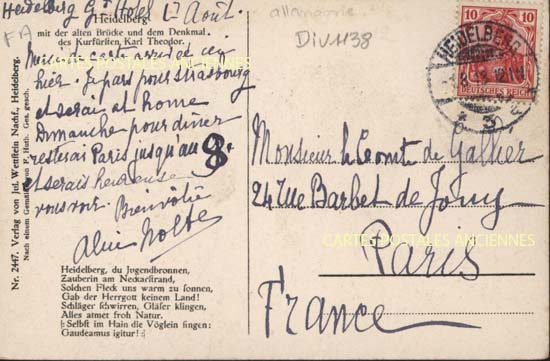 Heidelberg Gd Hotel 1r Août.
Heidelberg
mit der alten Brücke und dem Denkmal
des Kurfürsten, Karl Theodor.
Merci de carte
hier. Je pars pour Strasbourg
et serai at home
Dimanche pour dîner
resterai Paris jusqu'au 8
et serais heureuse
vous voir. Bien vôtre
Nr. 2447. Verlag von Jul. Wettstein Nachf., Heidelberg.
Nach einem Gemälde von Huth. Ges. gesch.
Heidelberg, du Jugendbronnen,
Zauberin am Neckarstrand,
Solchen Fleck uns warm zu sonnen,
Gab der Herrgott keinem Land!
Schläger schwirren, Gläser klingen,
Alles atmet froh Natur.
Selbst im Hain die Vöglein singen:
Gaudeamus igitur!
FA
allemagne
Div1138
10 10
DEUTSCHES REICH
HEIDELBERG
Monsieur le Comte de
24 rue Barbet de Jouy
Paris
France
CARTES POSTALES ANCIENNES
CARTES POSTALES ANCIENNES